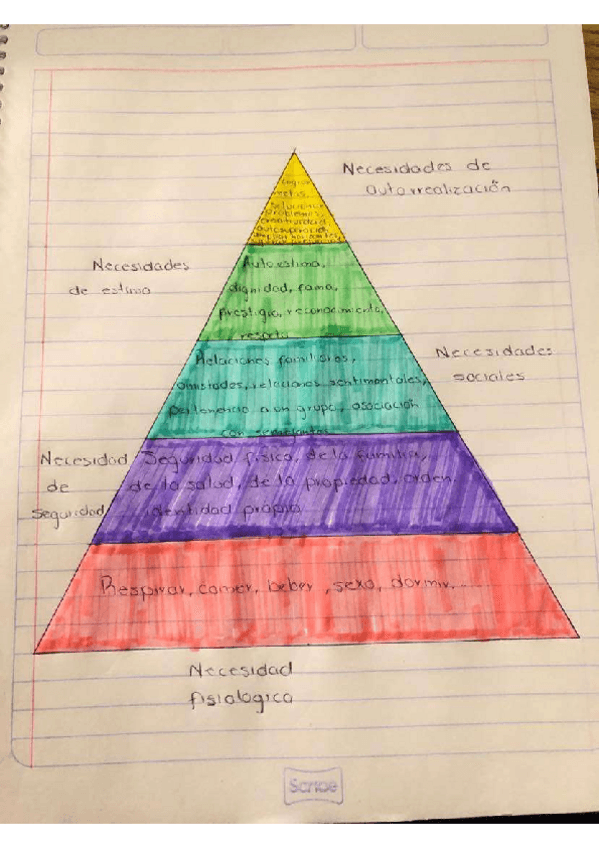 Necesidades de
autorrealización
metas,
creatividad
Necesidades
de estima
Autoestima,
dignidad, fama,
Prestigio, reconocimiento,
respeto
Necesidades
sociales
Relaciones familiares,
amistades, relaciones sentimentales,
pertenencia a un grupo, asociación
con
Necesidad
de
Seguridad
Seguridad física, de la familia,
de la salud, de la propiedad, orden,
identidad propia
Respirar, comer, beber, sexo, dormir,...
Necesidad
fisiologica
Scribe